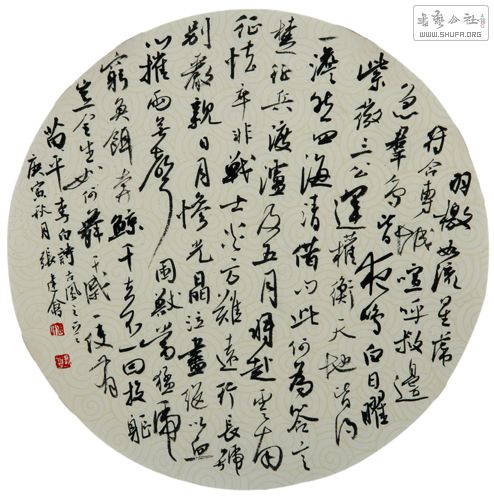 羽檄如流星虎
符合專城喧呼救邊
急群鳥皆夜鳴白日曜
紫微三公運權衡天地皆得
一澹然四海清借問此何為答言
楚征兵渡瀘及五月將赴雲南
征怯卒非戰士炎方難遠行長號
別嚴親日月慘光晶泣盡繼以血
心摧兩無聲困獸當猛虎
窮魚餌奔鯨千去不一回投軀
豈全生如何舞干戚一使有
苗平 李白詩古風之
庚寅秋月張建會
書藝公社
WWW.SHUFA.ORG